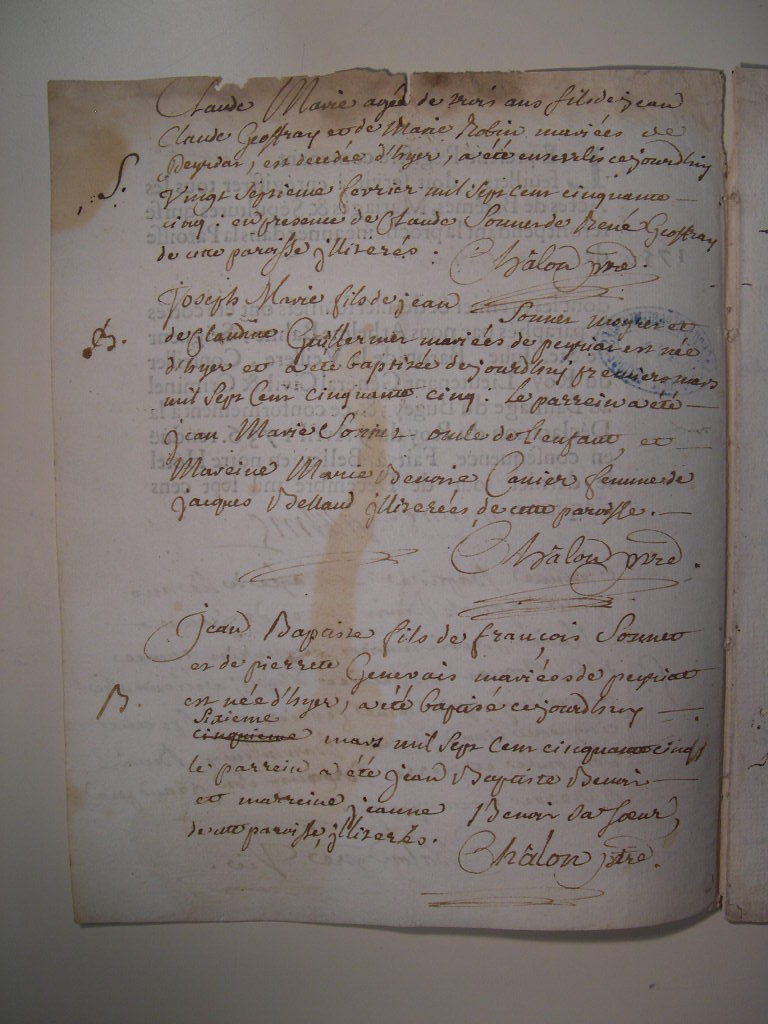 Claude Marie agée de trois ans fils de jean
Claude Geoffray et de Marie Robin mariées de
Peyriat, est decedée d'hyer, a été enseveli ce jourdhuy
S. Vingt Septieme fevrier mil Sept Cent cinquante
cinq. en presence de Claude Sonnet de René Geoffray
de cette paroisse jlliterés. Châlon ptre.
Joseph Marie fils de jean Sonnet et
B. de Claudine Guillermet mariées de peyriat est née
d'hyer et a été baptisée ce jourdhuj premier mars
mil Sept Cent cinquante cinq. le parrein a été
jean Marie Sonnet oncle de l'enfant, et
Mareine Marie Benoite femme de
jacques Belland jlliterées de cette paroisse.
Châlon ptre.
jean Baptiste fils de françois Sonnet
et de pierrette Genevais mariées de peyriat
B. est née d'hyer, a été baptisé ce jourdhuy
Sixieme
cinquieme mars mil Sept Cent cinquante cinq
le parrein a été jean Baptiste Benoit
et marreine jeanne Benoit sa Soeur,
de cette paroisse, jlliterés.
Châlon ptre.